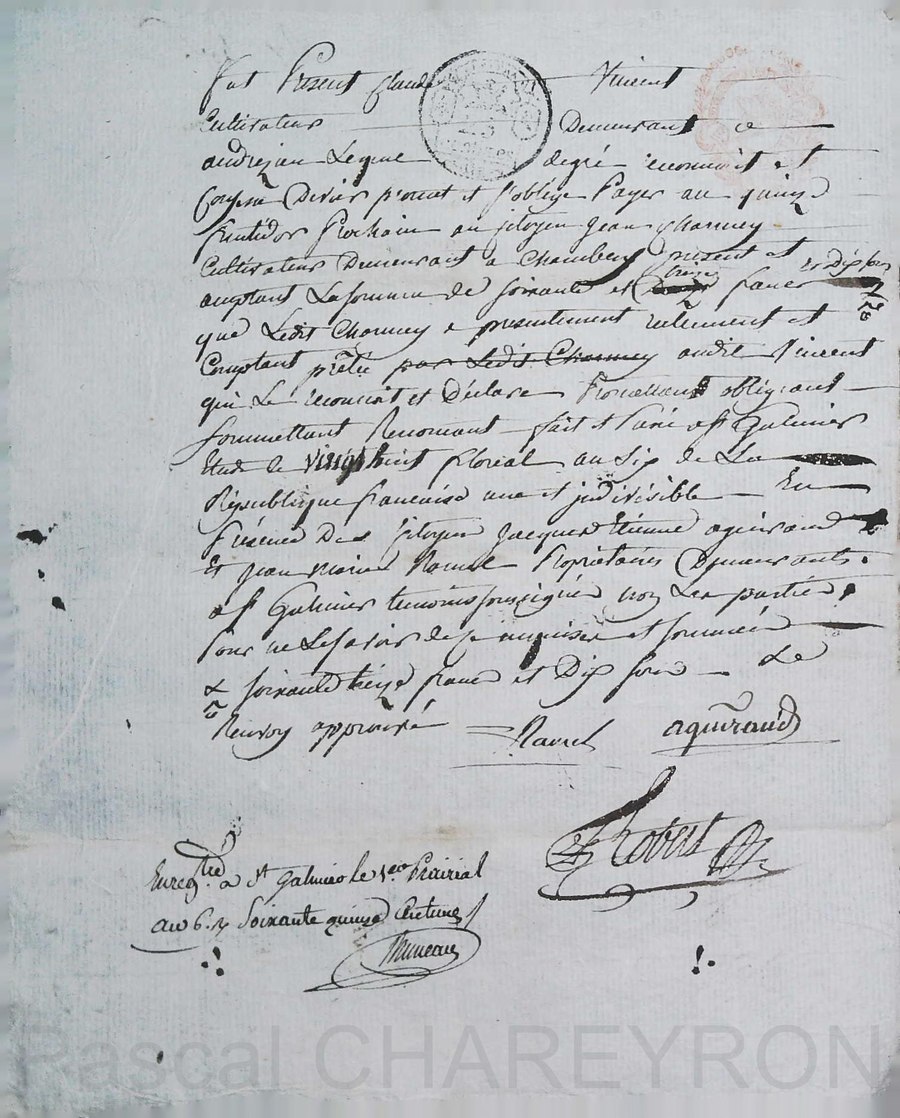 fut Present Claude Vincent
Cultivateur Demeurant a
andrezieu Lequel degré reconnoit et
Confesse Devoir promet et s'oblige Payer au quinze
fructidor Prochain au Citoyen Jean Charmey
Cultivateur Demeurant a Chambeuf présent et
acceptant La somme de soixante et treize francs et dix sous
que Ledit Charmey a presentement reelement et
Comptant prêté par Ledit Charmey audit Vincent
qui Le reconnoit et Déclare Promettant obligeant
soumettant Renonçant fait et Passé a st Galmier
Etude le vingt huit floréal an six de La
République françoise une et indivisible En
Présence Des Citoyens Jacques Etienne aguiraud
Et Jean Marie Ravel Propriétaires Demeurants
a st Galmier temoins soussignés non Les parties
Pour ne Le savoir de ce enquises et sommées
& soixante treize francs et Dix sous Le
Renvoy approuvé Ravel aguiraud
Robert
Enreg.tré a St Galmier le 1er Prairial
an 6. R. Soixante quinze Centimes
Pascal CHAREYRON